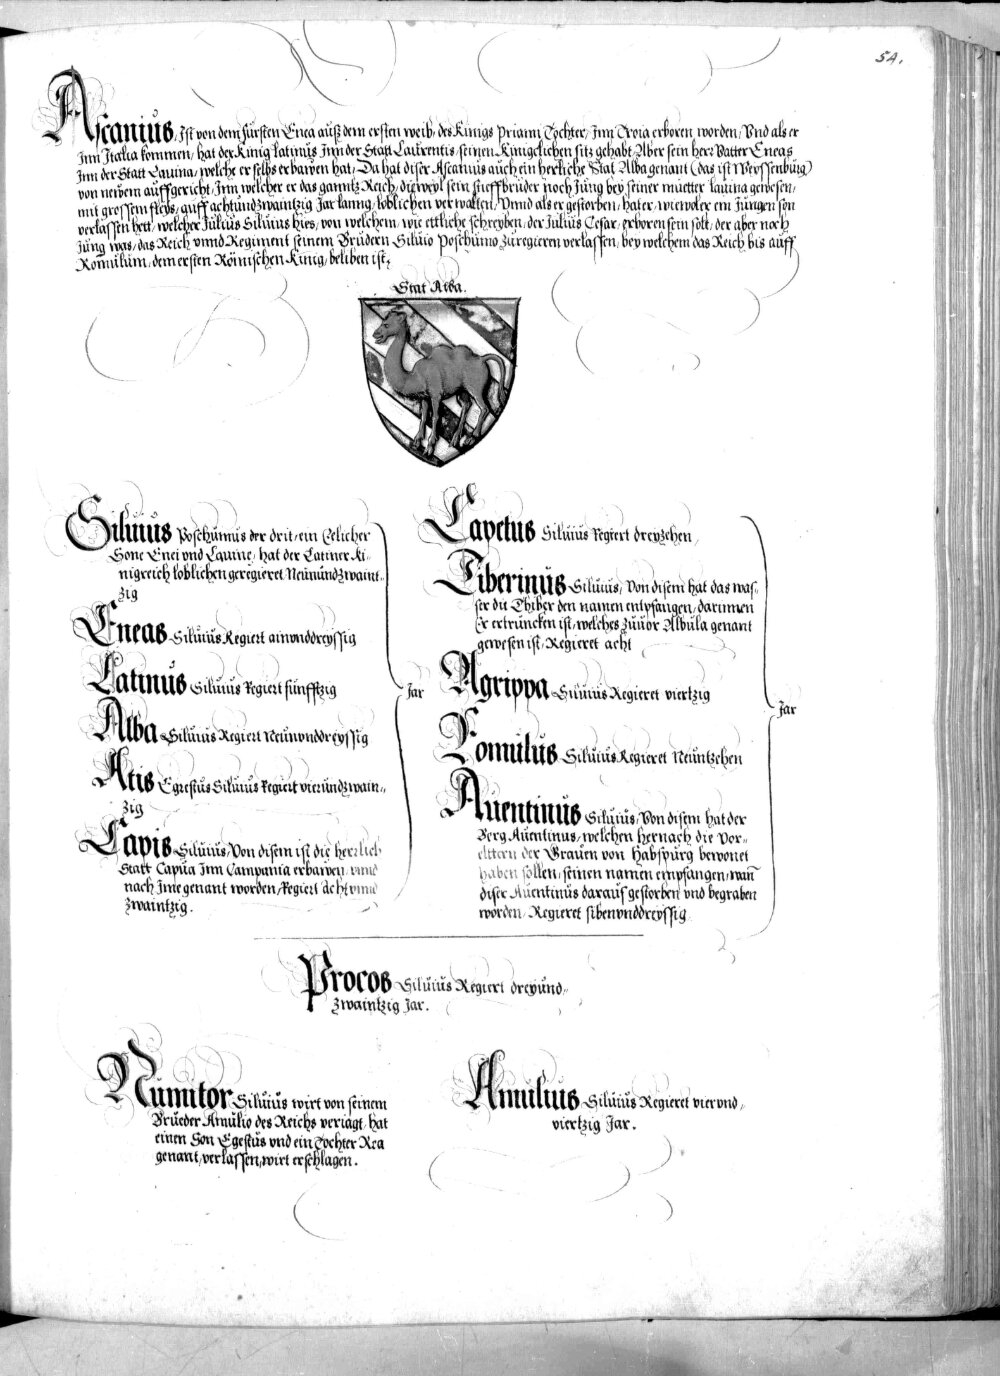 54.
Ascanius, Ist von dem fürsten Enea auß dem ersten weib, des Kinigs Priami Tochter, Inn Troia erboren worden, Vnd als er
Inn Italia kommen, hat der Kinig latinus Inn der Statt Laurentis, seinen Kinigclichen sitz gehabt, Aber sein herr Vatter Eneas
Inn der Statt Lauina, welche er selbs erbawen hat, Da hat diser Ascanius auch ein herrliche Stat Alba genant (das ist Weyssenburg)
von newem auffgericht, Inn welcher er das ganntz Reich, dieweyl sein stieffbrüder noch Jung bey seiner mutter lauina gewesen,
mit grossem fleys, auff achtundzwaintzig Jar lanng, loblichen verwalten, Vnnd als er gestorben, hat er, wiewoler ein Jungen son
verlassen hett, welcher Julius Siluius hies, von welchem, wie ettliche schreyben, der Julius Cesar, erboren sein solt, der aber noch
Jung was, das Reich vnnd Regiment seinem Brüdern Siluio Poschumo zuregieren verlassen, bey welchem das Reich bis auff
Romulum, dem ersten Römischen Kinig, beliben ist,
Stat Alba.
Siluius Poschumus der drit, ein Eelicher
Sone Enei vnd Lauine, hat der Latiner Ki-
nigreich loblichen geregieret Neunundzwaint-
zig
Eneas Siluius Regiert ainonddreyssig
Latinus Siluius Regiert funfftzig
Alba Siluius Regiert Neunonddreyssig
Atis Egrestus Siluius Regiert vierundzwain-
zig
Capis Siluius, Von disem ist die herrlich
Statt Capua Inn Campania erbawen, vnnd
nach Ime genant worden, Regiert acht vnnd
zwaintzig.
Jar
Capetus Siluius Regiert dreyzehen,
Tiberinus Siluius, Von disem hat das was-
ser die Thiber den namen entpfangen, darumen
Er ertruncken ist, welches zuuor Albula genant
gewesen ist, Regieret acht
Agrippa Siluius Regieret viertzig
Romulus Siluius Regieret Neuntzehen
Auentinus Siluius, Von disem hat der
Berg Auentinus, welchen hernach die Vor-
elttern der Grauen von Habspurg bewonet
haben sollen, seinen namen empfangen, wan̄
diser Auentinus darauf gestorben vnd begraben
worden, Regieret sibenvnddreyssig
Jar
Procos Siluius Regiert dreyund-
zwaintzig Jar.
Numitor Siluius wirt von seinem
Brueder Amulio des Reichs veriagt, hat
einen Son Egestus vnd ein Tochter Rea
genant, verlassen, wirt erschlagen.
Amulius Siluius Regieret viervnd-
viertzig Jar.